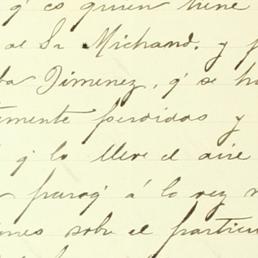 q' es quien tiene
de Sr Michaud, y p
Jimenez, q' se ha
mente perdidas y
q' lo lleve el aire
paraq' á la vez
ones sobre el particu